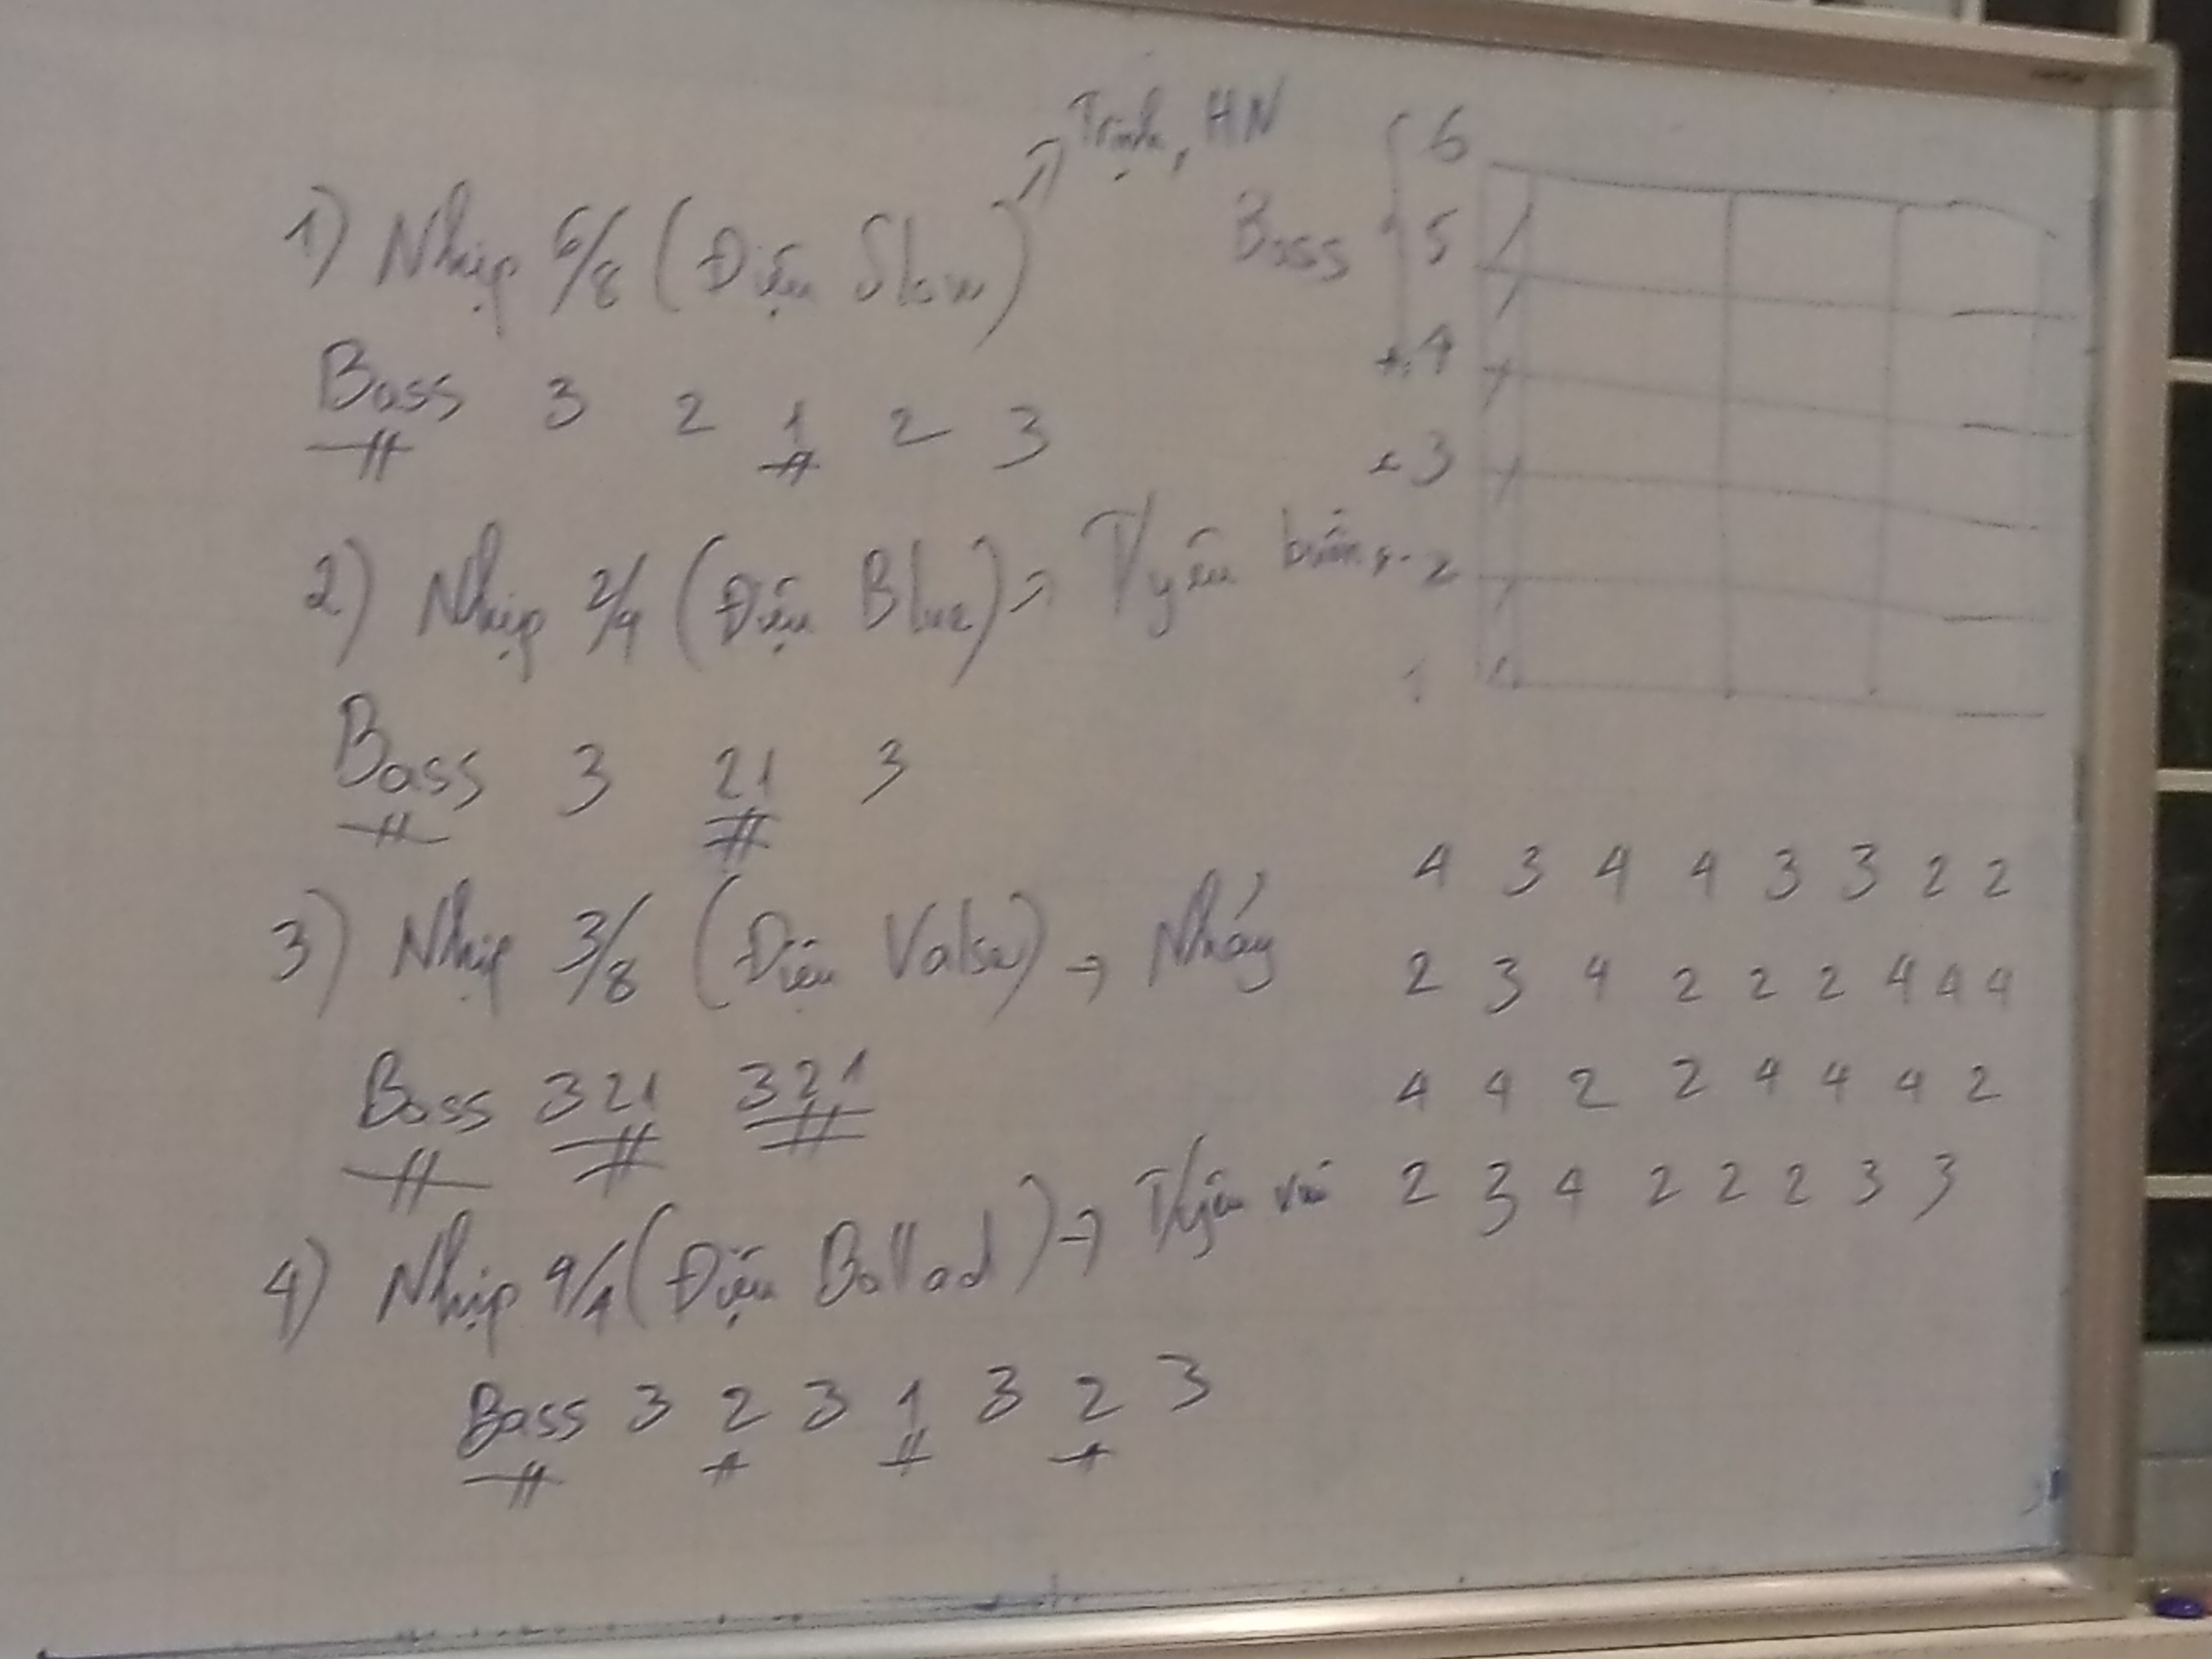 1) Nhịp 6/8 (Điệu Slow) → Trịnh, HN
Bass 3 2 1 2 3
2) Nhịp 2/4 (Điệu Blue) → T/yêu buồn
Bass 3 21 3
3) Nhịp 3/8 (Điệu Valse) → Nhảy
Bass 321 321
4) Nhịp 4/4 (Điệu Ballad) → T/yêu vui
Bass 3 2 3 1 3 2 3
6
Bass 5
4
3
2
1
4 3 4 4 3 3 2 2
2 3 4 2 2 2 4 4 4
4 4 2 2 4 4 4 2
2 3 4 2 2 2 3 3